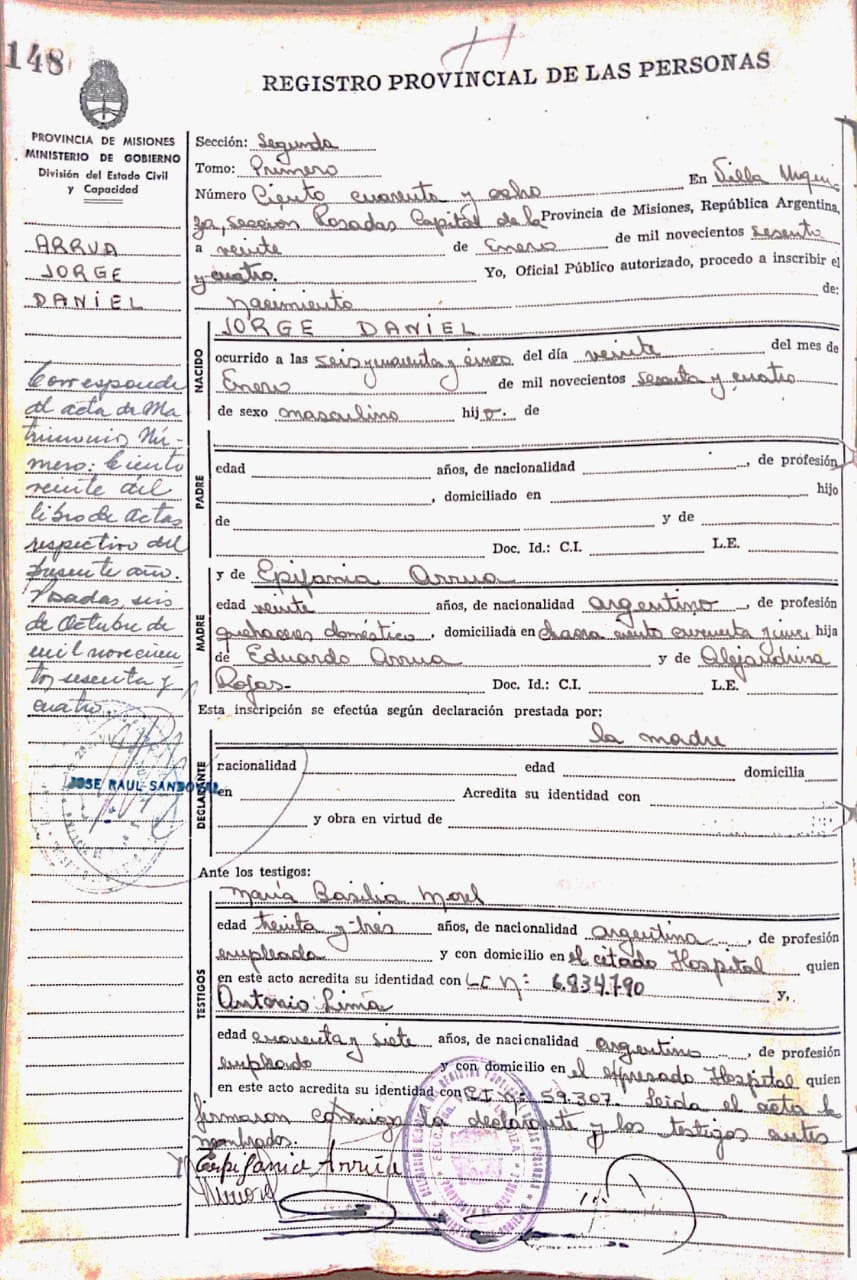 148
REGISTRO PROVINCIAL DE LAS PERSONAS
PROVINCIA DE MISIONES
MINISTERIO DE GOBIERNO
División del Estado Civil
y Capacidad
ARRUA
JORGE
DANIEL
Corresponde
al acta de Ma-
trimonio Nú-
mero: Ciento
veinte del
libro de actas
respectivo del
presente año.
Posadas, seis
de Octubre de
mil novecien
tos sesenta y
cuatro
JOSE RAUL SANDOVAL
Sección: Segunda
Tomo: Primero
Número Ciento cuarenta y ocho En Villa Urqui-
za, Sección Posadas Capital de la Provincia de Misiones, República Argentina,
a veinte de Enero de mil novecientos sesenta
y cuatro. Yo, Oficial Público autorizado, procedo a inscribir el
nacimiento de:
NACIDO
JORGE DANIEL
ocurrido a las seis y cuarenta y cinco del día veinte del mes de
Enero de mil novecientos sesenta y cuatro
de sexo masculino hijo. de
PADRE
edad años, de nacionalidad , de profesión
, domiciliado en hijo
de y de
Doc. Id.: C.I. L.E.
MADRE
y de Epifania Arrua
edad veinte años, de nacionalidad argentino, de profesión
quehaceres doméstico, domiciliada en chacra ciento cuarenta hija
de Eduardo Arrua y de Alejandrina
Rojas- Doc. Id.: C.I. L.E.
Esta inscripción se efectúa según declaración prestada por:
la madre
DECLARANTE
nacionalidad edad domicilia
en Acredita su identidad con
y obra en virtud de
Ante los testigos:
TESTIGOS
María Basilia Morel
edad treinta y tres años, de nacionalidad argentina, de profesión
empleada y con domicilio en el citado Hospital quien
en este acto acredita su identidad con LC Nº: 6.834.790 y,
Antonio Lima
edad cuarenta y siete años, de nacionalidad argentino, de profesión
empleado y con domicilio en el expresado Hospital quien
en este acto acredita su identidad con C.I. Nº: 59.307. Leida el acta la
firmaron conmigo la declarante y los testigos antes
nombrados.
Epifania Arrúa